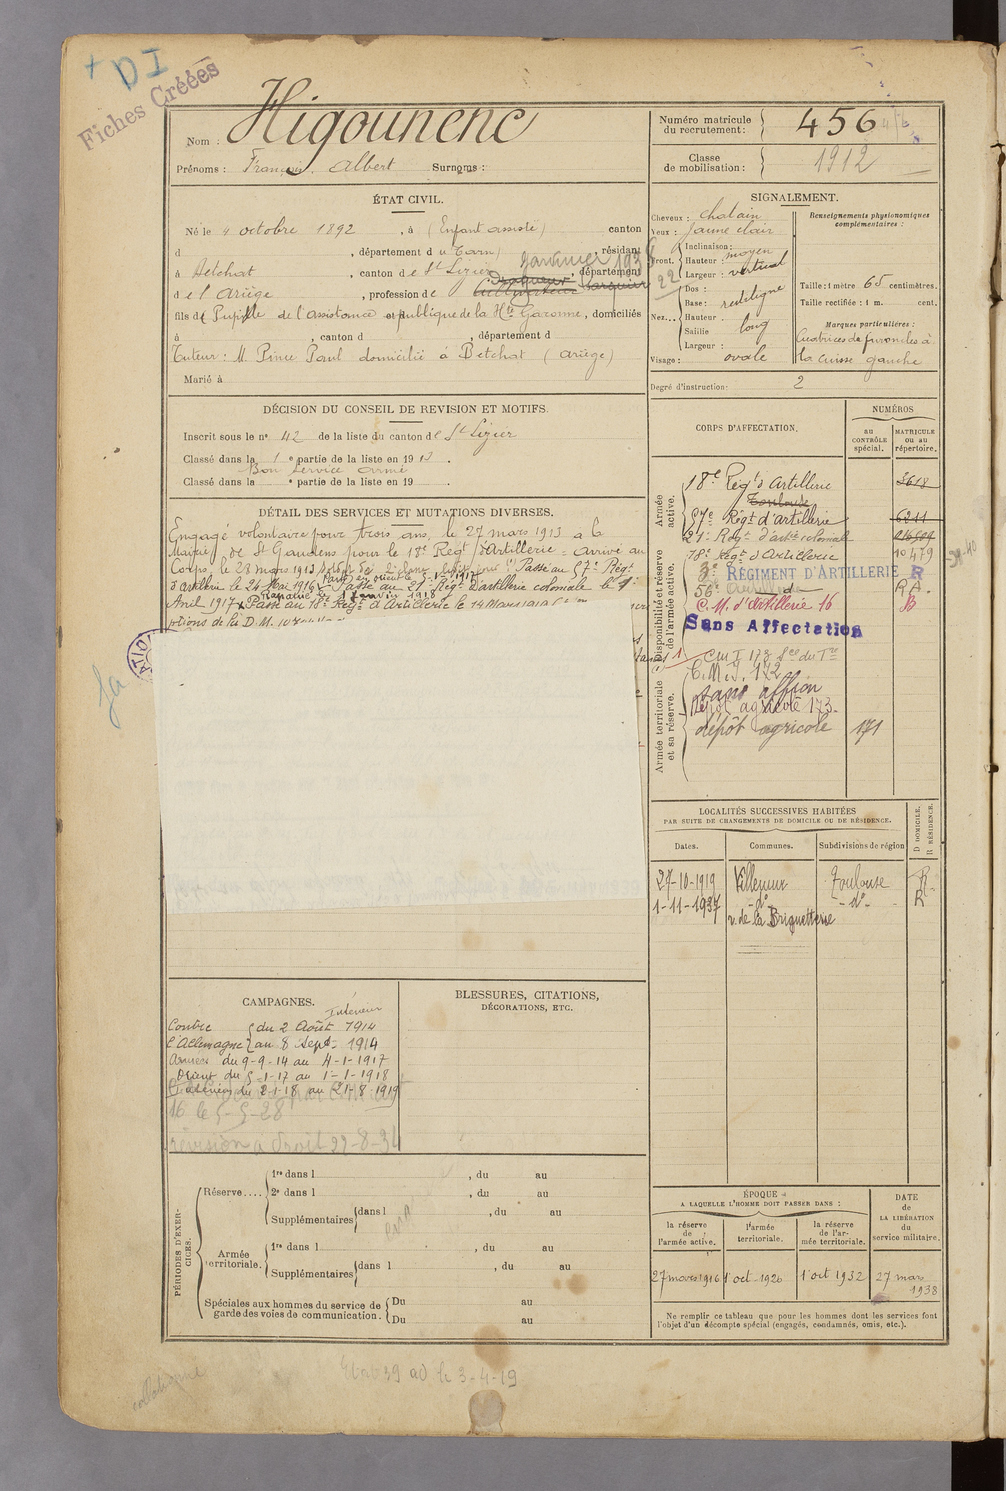 + DI
Fiches Créées
Nom : Higounenc
Prénoms : François Albert Surnoms :
Numéro matricule du recrutement : 456
Classe de mobilisation : 1912
ÉTAT CIVIL.
Né le 4 octobre 1892, à (Enfant assisté) canton
d , département du Tarn) résidant
à Betchat, canton de St Lizier, département
janvier 1938
de l'Ariège, profession de Cultivateur
fils de Pupille de l'assistance publique de la Hte Garonne, domiciliés
à , canton d , département d
Tuteur : M. Pince Paul domicilié à Betchat (Ariège)
Marié à
SIGNALEMENT.
Cheveux : chatain
Yeux : jaune clair
Front. Inclinaison : moyen
Hauteur :
Largeur : vertical
22
Nez... Dos :
Base : rectiligne
Hauteur :
Saillie long
Largeur :
Visage : ovale
Renseignements physionomiques complémentaires :
Taille : 1 mètre 65 centimètres.
Taille rectifiée : 1 m. cent.
Marques particulières :
Cicatrices de furoncles à
la cuisse gauche
Degré d'instruction : 2
DÉCISION DU CONSEIL DE REVISION ET MOTIFS.
Inscrit sous le n° 42 de la liste du canton de St Lizier
Classé dans la 1e partie de la liste en 1913.
Bon service armé
Classé dans la e partie de la liste en 19 .
DÉTAIL DES SERVICES ET MUTATIONS DIVERSES.
Engagé volontaire pour trois ans, le 27 mars 1913 à la
Mairie de St Gaudens pour le 18e Régt d'Artillerie = arrivé au
Corps, le 28 mars 1913 soldat de 2e classe Passé au 57e Régt
d'artillerie le 24 Mai 1916 Passé au 21e Régt d'artillerie coloniale le 1er
Parti en orient le 5-1-1917
Rapatrié le 1 Janvier 1918
Avril 1917 Passé au 18e Régt d'Artillerie le 14 Mars
CORPS D'AFFECTATION.
NUMÉROS
au CONTRÔLE spécial.
MATRICULE ou au répertoire.
Armée active.
18e Régt d'Artillerie 3618
Toulouse
57e Régt d'artillerie 6211
21e Régt d'artie coloniale
Disponibilité et réserve de l'armée active.
18e Régt d'Artillerie 10479
3e RÉGIMENT D'ARTILLERIE R
56e d° RA.
C.M. d'Artillerie 16 B
Sans Affectation
39-40
Armée territoriale et sa réserve.
Cm I 173 Son du Tre
C.M.I. 172
sans affion
Dépôt agricole 173
dépôt agricole 171
LOCALITÉS SUCCESSIVES HABITÉES
PAR SUITE DE CHANGEMENTS DE DOMICILE OU DE RÉSIDENCE.
Dates. Communes. Subdivisions de région D DOMICILE. R RÉSIDENCE.
27-10-1919 Villemur Toulouse R
1-11-1937 -d°- -d°- R
r. de la Briquetterie
CAMPAGNES.
Intérieur
Contre l'Allemagne du 2 Août 1914
au 8 Sept. 1914
Armées du 9-9-14 au 4-1-1917
Orient du 5-1-17 au 1-1-1918
Intérieur du 2-1-18 au 21-8-1919
16 le 5-5-28
révision a droit 22-8-31
BLESSURES, CITATIONS,
DÉCORATIONS, ETC.
PÉRIODES D'EXERCICES.
Réserve.... 1re dans l , du au
2e dans l , du au
Supplémentaires dans l , du au
Armée territoriale. 1re dans l , du au
Supplémentaires dans l , du au
Spéciales aux hommes du service de garde des voies de communication. Du au
Du au
ÉPOQUE
A LAQUELLE L'HOMME DOIT PASSER DANS :
la réserve de l'armée active. l'armée territoriale. la réserve de l'armée territoriale.
DATE de LA LIBÉRATION du service militaire.
27 mars 1916 1 oct 1926 1 oct 1932 27 mars 1938
Ne remplir ce tableau que pour les hommes dont les services font
l'objet d'un décompte spécial (engagés, condamnés, omis, etc.).
le 3-4-19